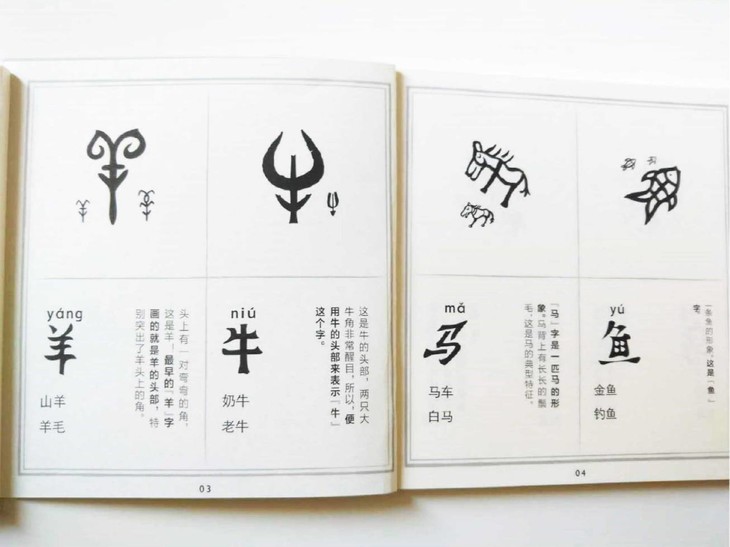 yáng
羊
山羊
羊毛
头上有一对弯弯的角，
这是羊！最早的「羊」字
画的就是羊的头部，特
别突出了羊头上的角。
niú
牛
奶牛
老牛
这是牛的头部，两只大
牛角非常醒目，所以，便
用牛的头部来表示「牛」
这个字。
03
mǎ
马
马车
白马
「马」字是一匹马的形
象。马背上有长长的鬃
毛，这是马的典型特征。
yú
鱼
金鱼
钓鱼
一条鱼的形象，这是「鱼」
字。
04